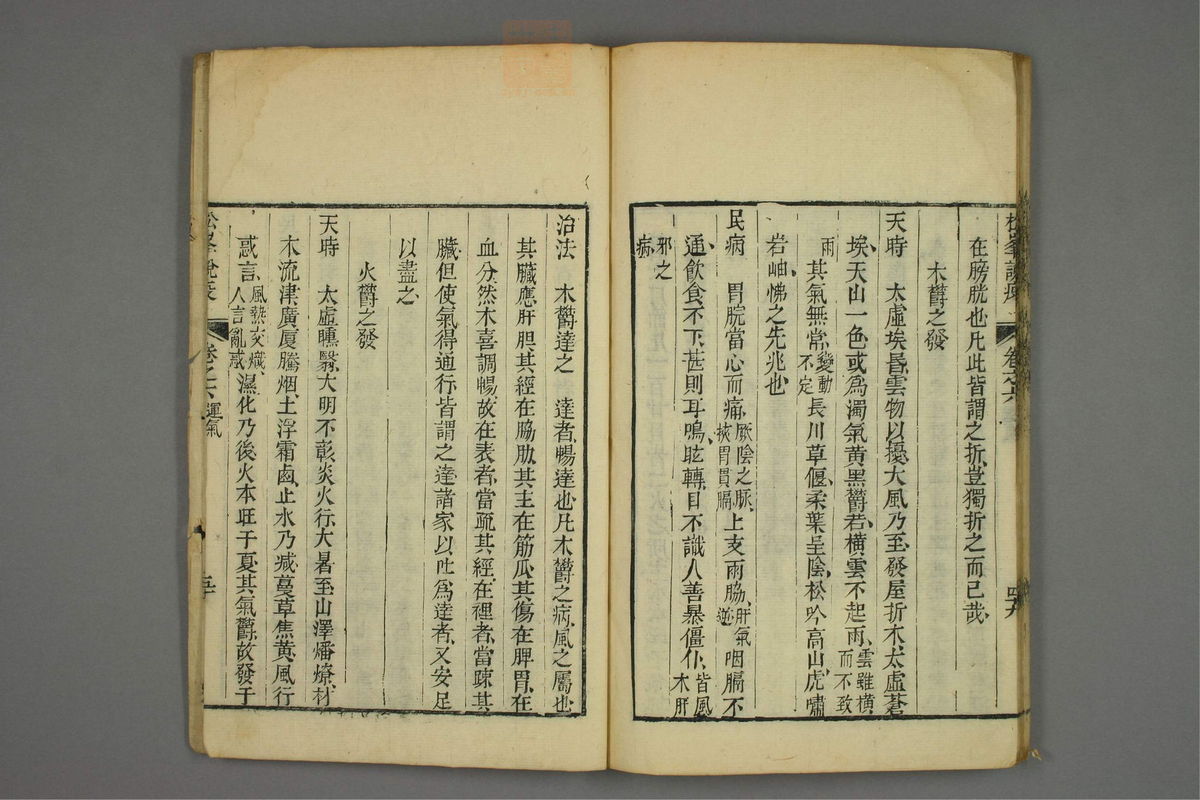 松峯說疫 卷之六 四六
在膀胱也凡此皆謂之折豈獨折之而已哉
木鬱之發
天時 太虛埃昬雲物以擾大風乃至發屋折木太虛蒼
埃天山一色或爲濁氣黃黑鬱若橫雲不起雨雲雖橫而不致
雨其氣無常變動不定長川草偃柔葉呈陰松吟高山虎嘯
岩岫怫之先兆也
民病 胃脘當心而痛厥陰之脈挾胃貫膈上支兩脇肝氣逆咽膈不
通飲食不下甚則耳鳴眩轉目不識人善暴僵仆皆風木肝
邪之病
治法 木鬱達之 達者暢達也凡木鬱之病風之屬也
其臟應肝胆其經在脇肋其主在筋瓜其傷在脾胃在
血分然木喜調暢故在表者當疏其經在裡者當疎其
臟但使氣得通行皆謂之達諸家以吐爲達者又安足
以盡之
火鬱之發
天時 太虛曛翳大明不彰炎火行大暑至山澤燔燎材
木流津廣厦騰烟土浮霜鹵止水乃减蔓草焦黃風行
惑言風熱交熾人言亂惑濕化乃後火本旺于夏其氣鬱故發于
松峯說疫 卷之六 運氣